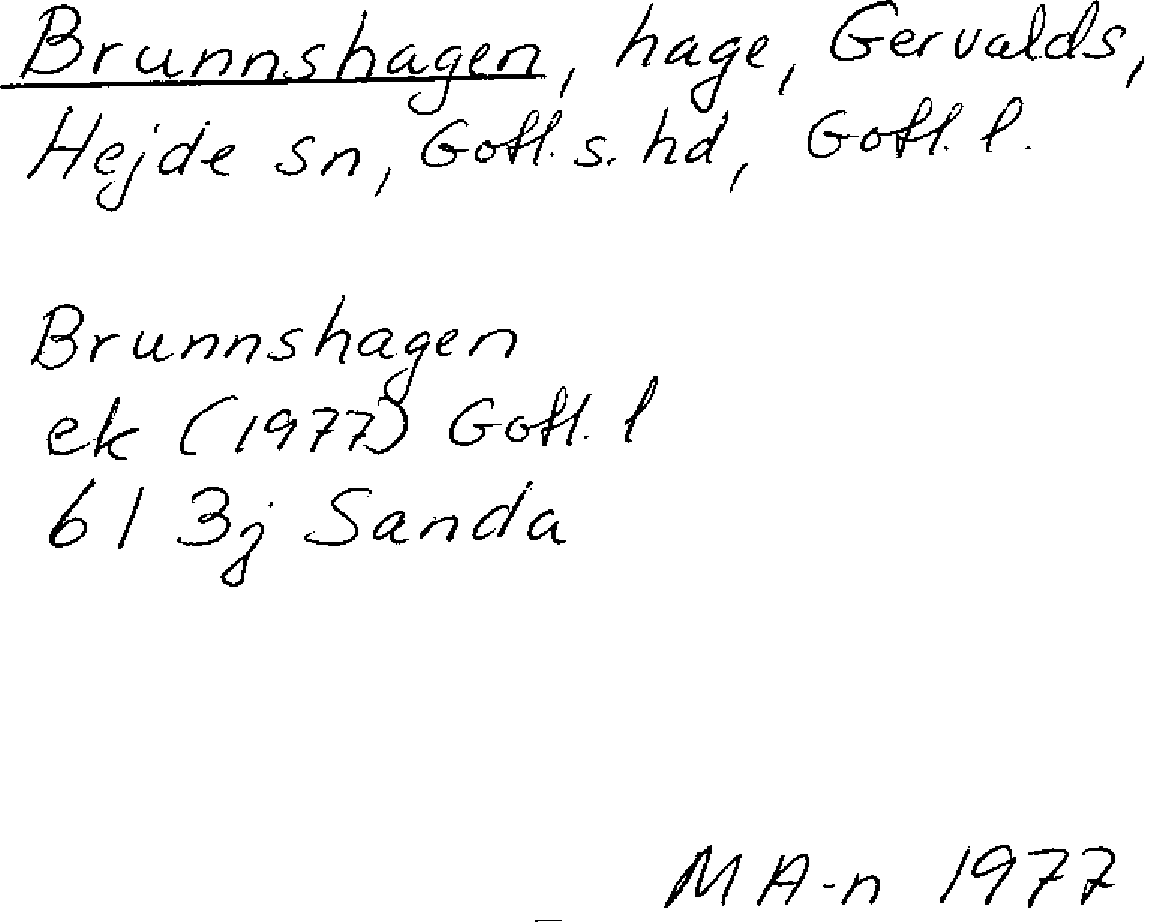 Brunnshagen, hage, Gervalds,
Hejde sn, Gotl. s. hd, Gotl. l.
Brunnshagen
ek (1977) Gotl. l
6I 3j Sanda
MA-n 1977